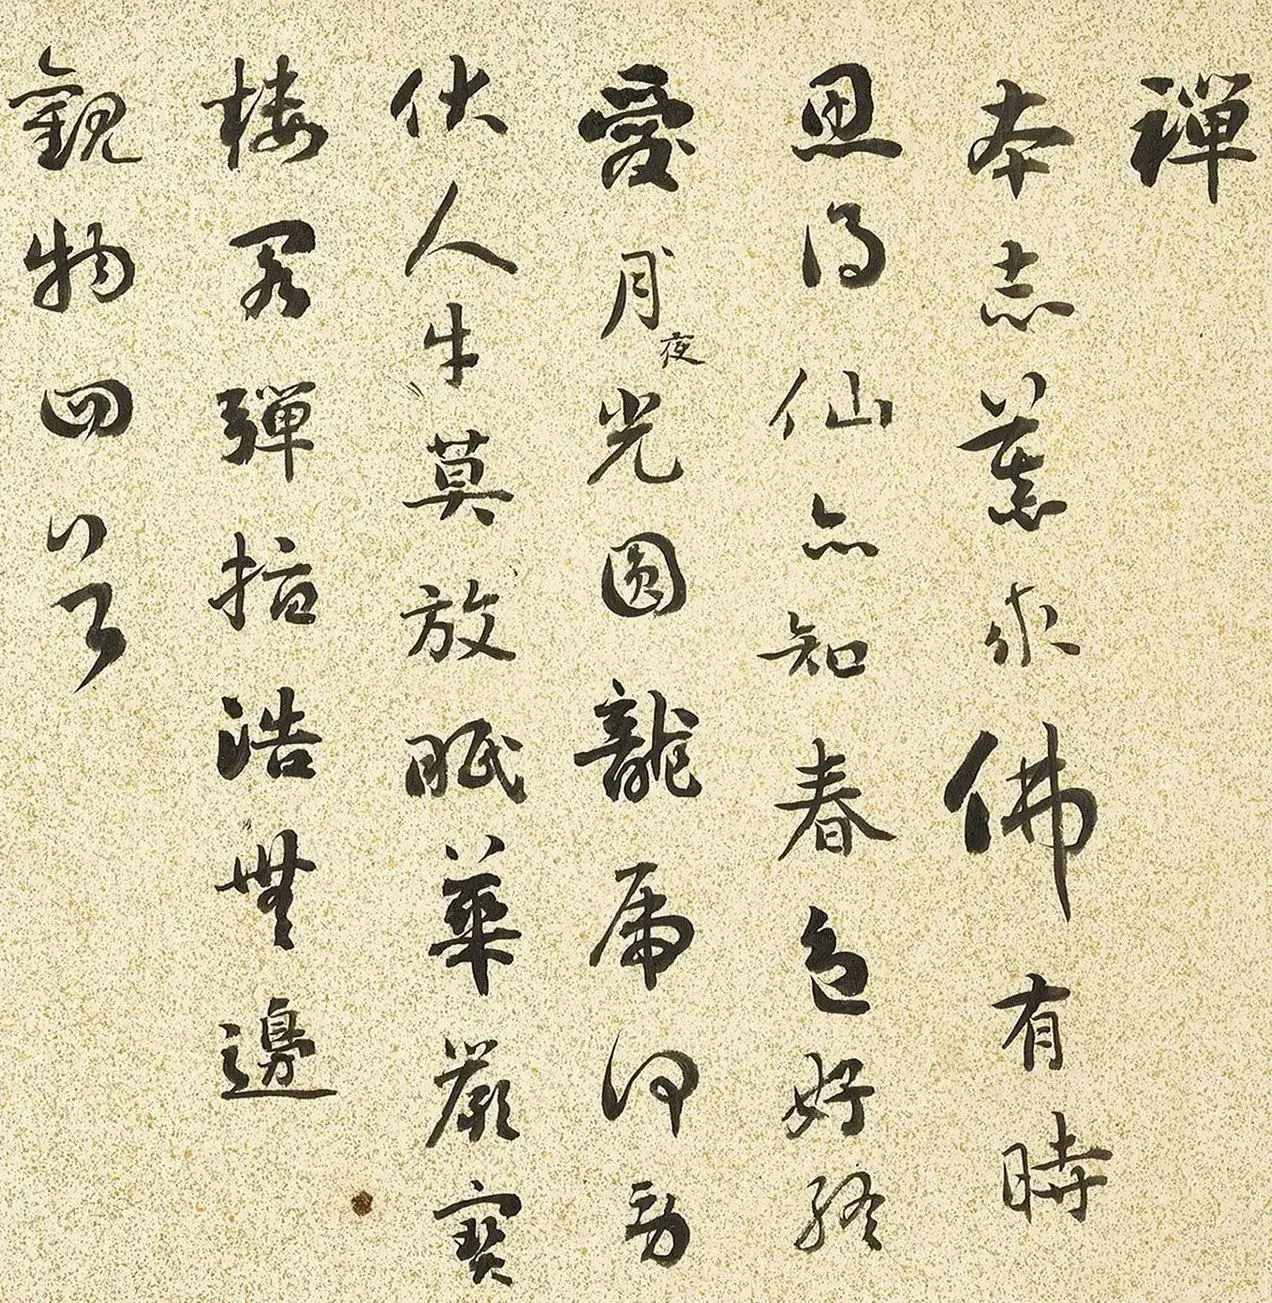 禪
本志兼求佛有時
思得仙亦知春色好終
愛月夜光圓龍虎何勞
伏人牛莫放眠華嚴寶
樓閣彈指浩無邊
觀物四首